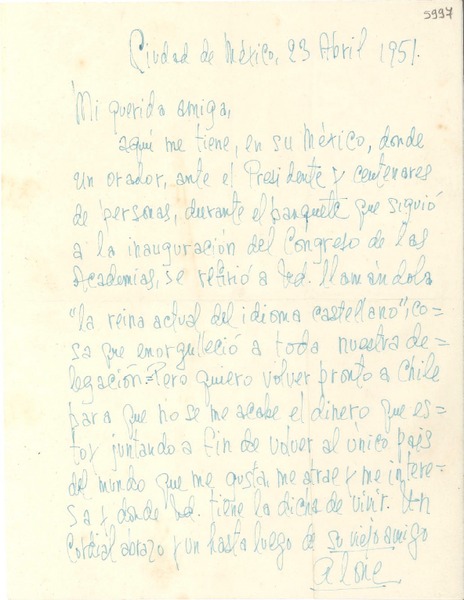 5997
Ciudad de México, 23 Abril 1951.
Mi querida amiga,
aquí me tiene, en su México, donde
un orador, ante el Presidente y centenares
de personas, durante el banquete que siguió
a la inauguración del Congreso de las
Academias, se refirió a Ud. llamándola
"la reina actual del idioma castellano", co-
sa que enorgulleció a toda nuestra de-
legación.= Pero quiero volver pronto a Chile
para que no se me acabe el dinero que es-
toy juntando a fin de volver al único país
del mundo que me gusta, me atrae y me intere-
sa y donde Ud. tiene la dicha de vivir. Un
cordial abrazo y un hasta luego de su viejo amigo
Alone